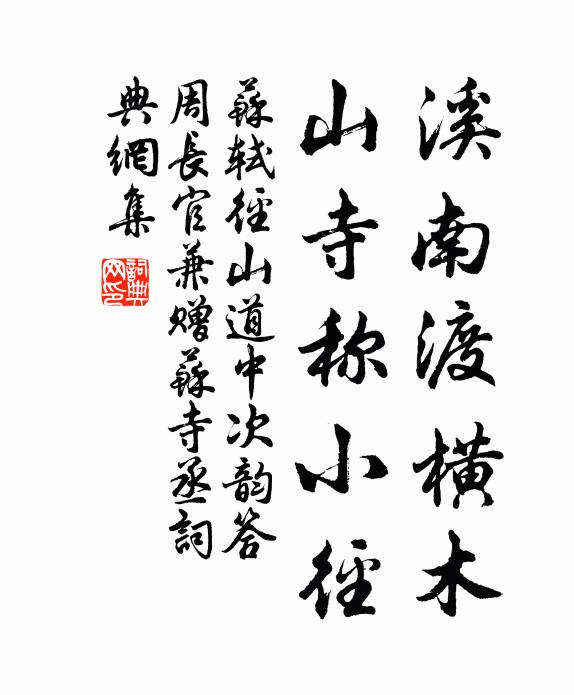 溪南渡横木
山寺称小径
蘇軾徑山道中次韵答
周長官兼赠蘇寺丞詞
典網集
詞典
网印